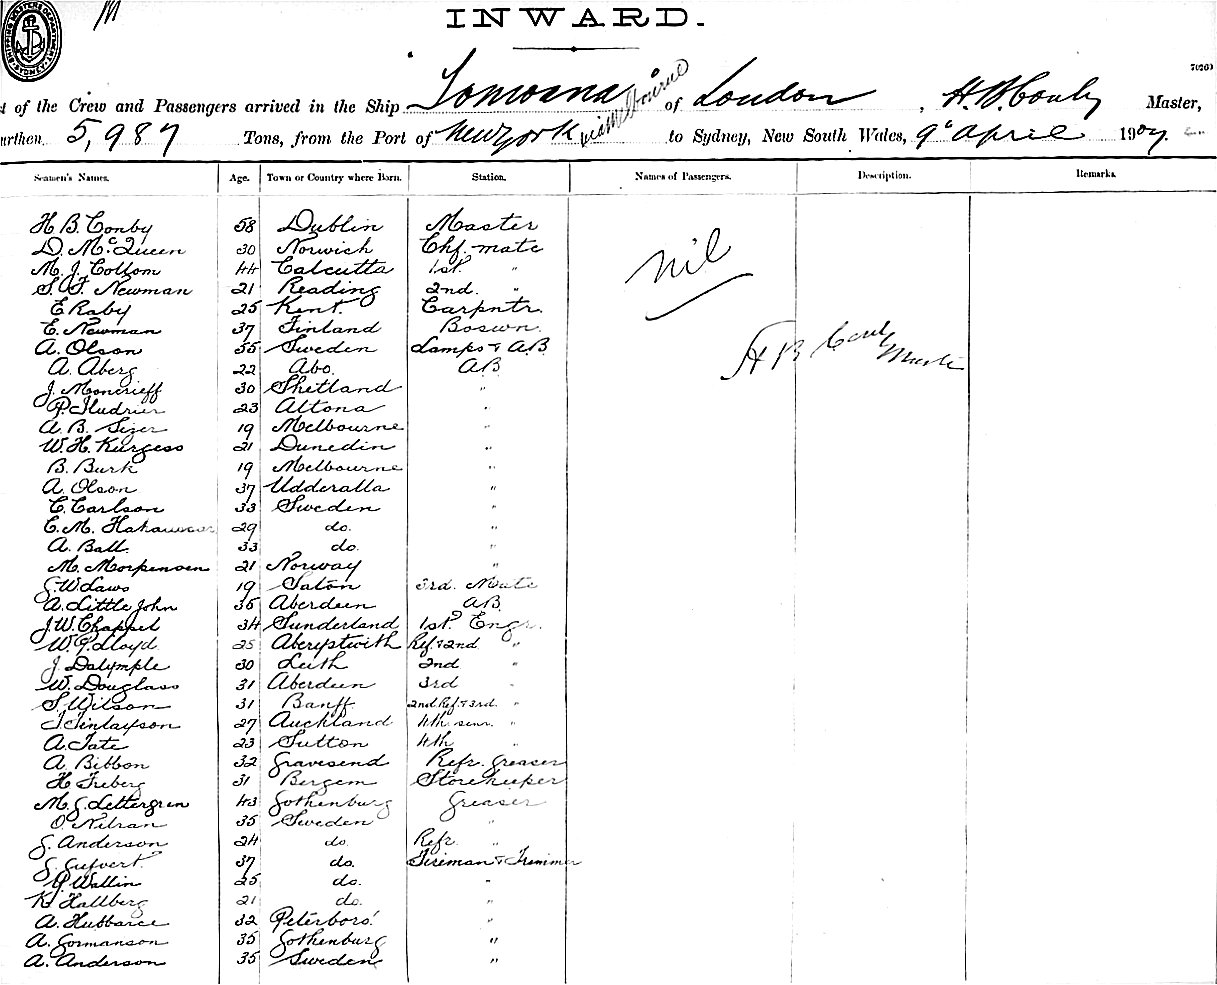 INWARD.
of the Crew and Passengers arrived in the Ship via Melbourne of London, H. B. Conby Master,
urthen 5,987 Tons, from the Port of New York to Sydney, New South Wales, 9 April 1907.
Seamen's Names. Age. Town or Country where Born. Station. Names of Passengers. Description. Remarks.
H B Conby 58 Dublin Master
D. McQueen 30 Norwich Chf. mate
M. J. Cottom 44 Calcutta 1st. "
S. F. Newman 21 Reading 2nd. "
nil
E Raby 25 Kent. Carpntr.
C. Newman 37 Finland Boswn.
A. Olson 55 Sweden Lamps & AB
H B
A. Aberg 22 Abo. AB
J. Moncrieff 30 Shetland "
P. 23 Altona "
A. B. Sizer 19 Melbourne "
W. H. Kurgess 21 Dunedin "
B. Burk 19 Melbourne "
A. Olson 37 Udderalla "
C. Carlson 33 Sweden "
C. M. 29 do. "
A. Ball 33 do. "
M. Morpensen 21 Norway "
G. W Laws 19 Saton 3rd. Mate
A. Little John 36 Aberdeen AB
J. W. Chappel 34 Sunderland 1st. Engr.
W. G. Lloyd 25 Aberystwith Ref. & 2nd "
J. Dalymple 30 Leith 2nd "
W. Douglass 31 Aberdeen 3rd "
S. Wilson 31 Banff 2nd Ref. & 3rd. "
J Finlayson 27 Auckland 4th senr. "
A. Tate 23 Sutton 4th "
A. Bibbon 32 Gravesend Refr. greaser
H Freberg 31 Bergem Storekeeper
M. G. Lettergren 43 Gothenburg Greaser
O. Nilsan 35 Sweden "
G. Anderson 24 do. Refr. "
G. 37 do. Fireman & Trimmer
G. Wallin 25 do. "
K. Hallberg 21 do. "
A. Hubbarce 32 Peterboro' "
A. Gormanson 35 Gothenburg "
A. Anderson 35 Sweden "